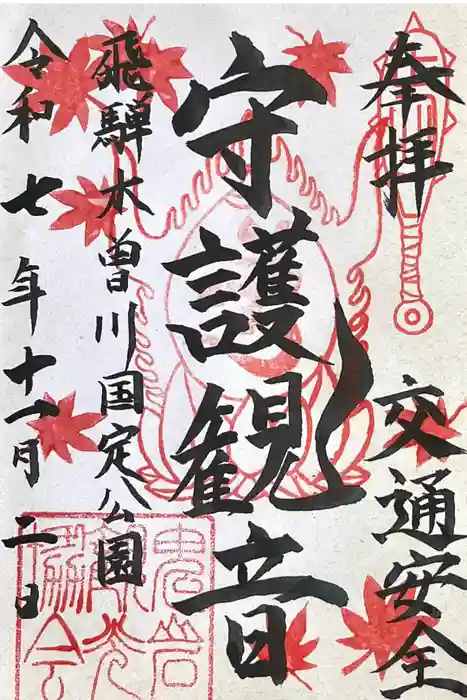 奉拝
交通安全
守護観音
飛騨木曽川国定公園
令和七年十一月二日
鬼岩
観光
協会